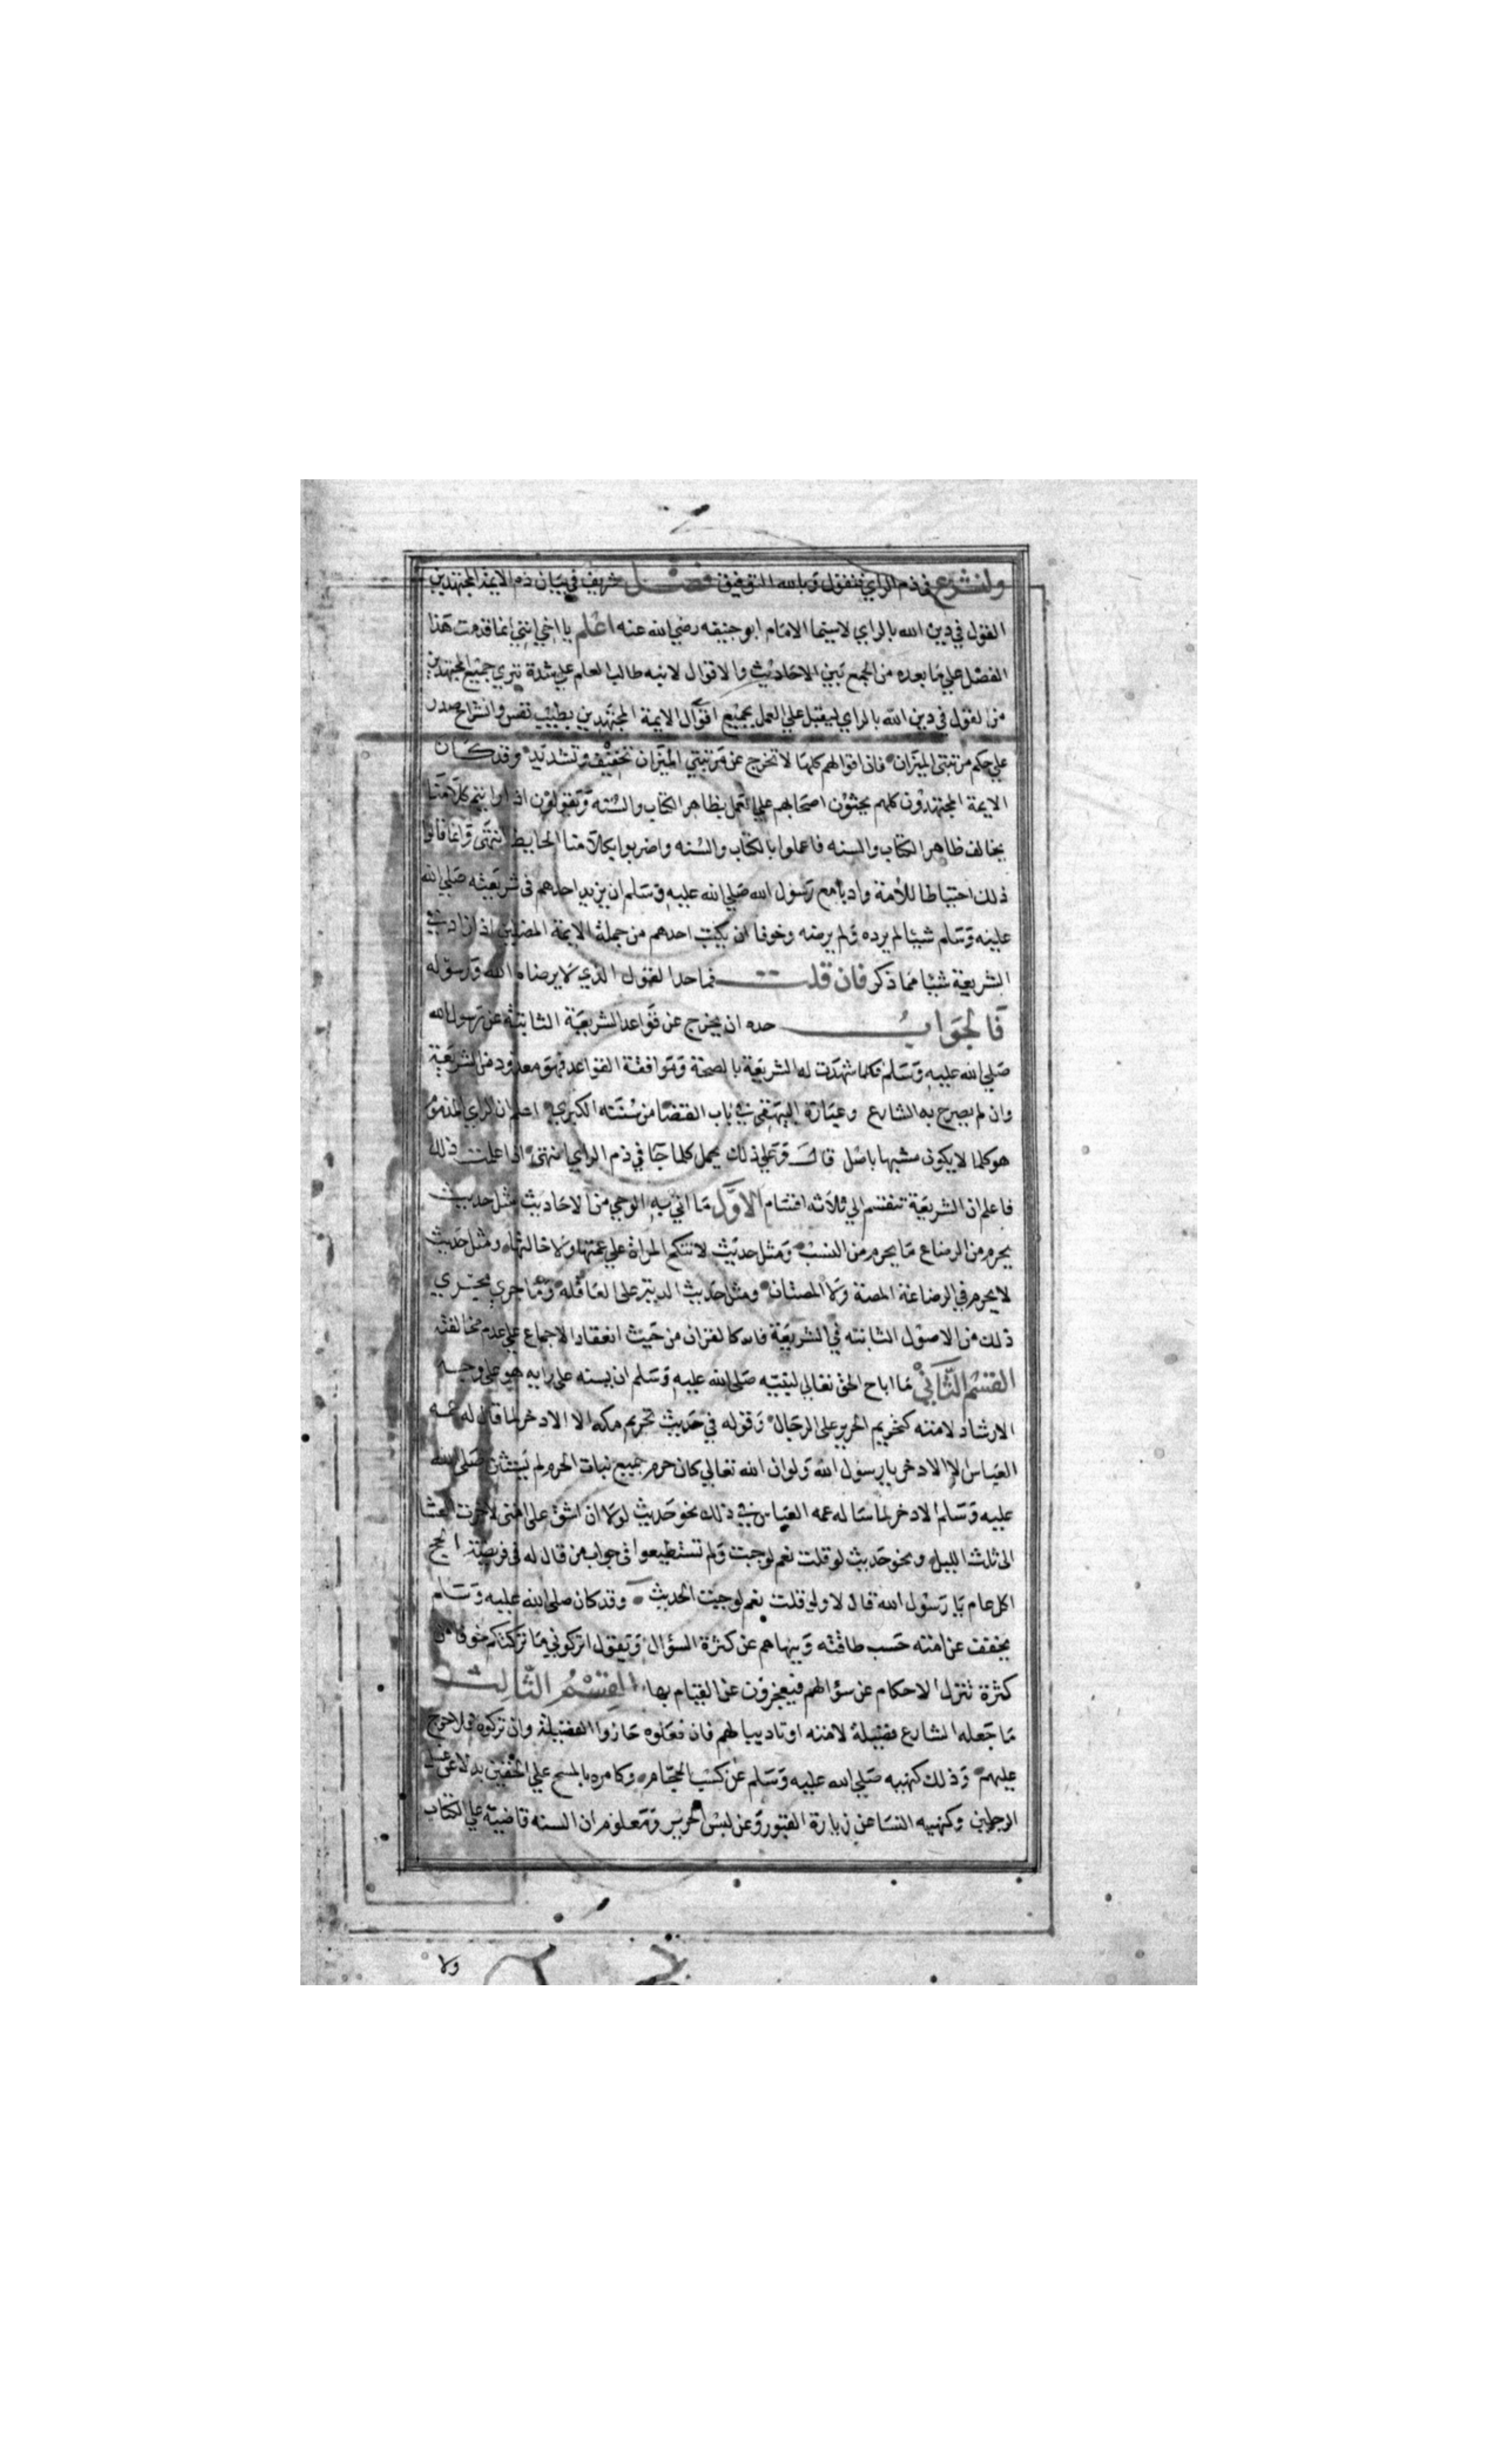 ولنشرع في ذم الراي فنقول وبالله التوفيق فصل شريف في بيان ذم الايمة المجتهدين
القول في دين الله بالراي لاسيما الامام ابو حنيفه رضي الله عنه اعلم يا اخي انني انما قدمت هذا
الفصل علي ما بعده من الجمع بين الاحاديث والاقوال لانبه طالب العلم علي شدة تبري جميع المجتهدين
من القول في دين الله بالراي ليقبل علي العمل بجميع اقوال الايمة المجتهدين بطيب نفس وانشراح صدر
علي حكم مرتبتي الميزان فان اقوالهم كلها لا تخرج عن مرتبتي الميزان تخفيف وتشديد وقد كان
الايمة المجتهدون كلهم يحثون اصحابهم علي العمل بظاهر الكتاب والسنه ويقولون اذا رايتم كلامنا
يخالف ظاهر الكتاب والسنه فاعملوا بالكتاب والسنه واضربوا بكلامنا الحايط انتهي وانما قالوا
ذلك احتياطا للأمة وادبا مع رسول الله صلي الله عليه وسلم ان يزيد احدهم في شريعته صلي الله
عليه وسلم شيئا لم يرده ولم يرضه وخوفا ان يكتب احدهم من جملة الايمة المضلين اذا زاد في
الشريعة شيئا مما ذكر فان قلت فما حد القول الذي لا يرضاه الله ورسوله
فالجواب حده ان يخرج عن قواعد الشريعة الثابتة عن رسول الله
صلي الله عليه وسلم فكلما شهدت له الشريعة بالصحة وموافقة القواعد فهو معدود من الشريعة
وان لم يصرح به الشارع وعبارة البيهقي في باب القضا من سننه الكبري اعلم ان الراي المذموم
هو كلما لا يكون مشبها باصل قال وعلي ذلك يحمل كلما جا في ذم الراي انتهي اذا علمت ذلك
فاعلم ان الشريعة تنقسم الي ثلاثه اقسام الاول ما اتي به الوحي من الاحاديث مثل حديث
يحرم من الرضاع ما يحرم من النسب ومثل حديث لا تنكح المراة علي عمتها ولا خالتها ومثل حديث
لا يحرم في الرضاعة المصة ولا المصتان ومثل حديث الدية على العاقله وما جري مجري
ذلك من الاصول الثابته في الشريعة فانه كالقران من حيث انعقاد الاجماع علي عدم مخالفته
القسم الثاني ما اباح الحق تعالي لنبيه صلي الله عليه وسلم ان يسنه على رايه هو على وجه
الارشاد لامته كتحريم الحرير على الرجال وقوله في حديث تحريم مكه الا الادخر لما قال له عمه
العباس الا الادخر يا رسول الله ولو ان الله تعالي كان حرم جميع نبات الحرم لم يستثن صلى الله
عليه وسلم الادخر لما ساله عمه العباس في ذلك نحو حديث لولا ان اشق على امتي لاخرت العشا
الى ثلث الليل ونحو حديث لو قلت نعم لوجبت ولم تستطيعوا في جواب من قال له في فريضة الحج
اكل عام يا رسول الله قال لا ولو قلت نعم لوجبت الحديث وقد كان صلى الله عليه وسلم
يخفف عن امته حسب طاقته وينهاهم عن كثرة السؤال ويقول اتركوني ما تركتكم خوفا من
كثرة تنزل الاحكام عن سؤالهم فيعجزون عن القيام بها القسم الثالث
ما جعله الشارع فضيلة لامته او تاديبا لهم فان فعلوه حازوا الفضيلة وان تركوه فلا حرج
عليهم وذلك كنهيه صلي الله عليه وسلم عن كسب الحجام وكامره بالمسح علي الخفين بدلا عن غسل
الرجلين وكنهيه النسا عن زيارة القبور وعن لبس الحرير ومعلوم ان السنه قاضية علي الكتاب
ولا